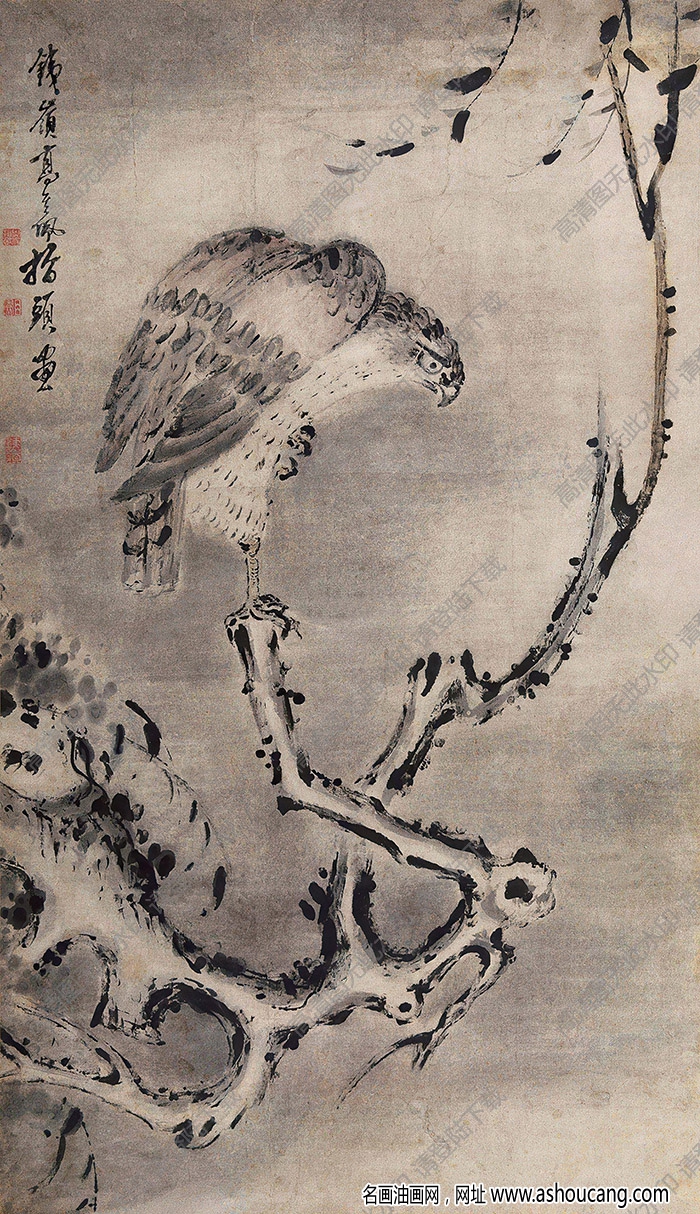 鐵嶺高其佩指頭畫
高清图无此水印 请登陆下载
名画油画网，网址 www.ashoucang.com